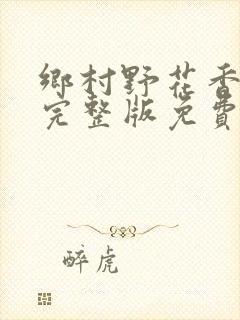 鄉村野花香
完整版免費
醉虎